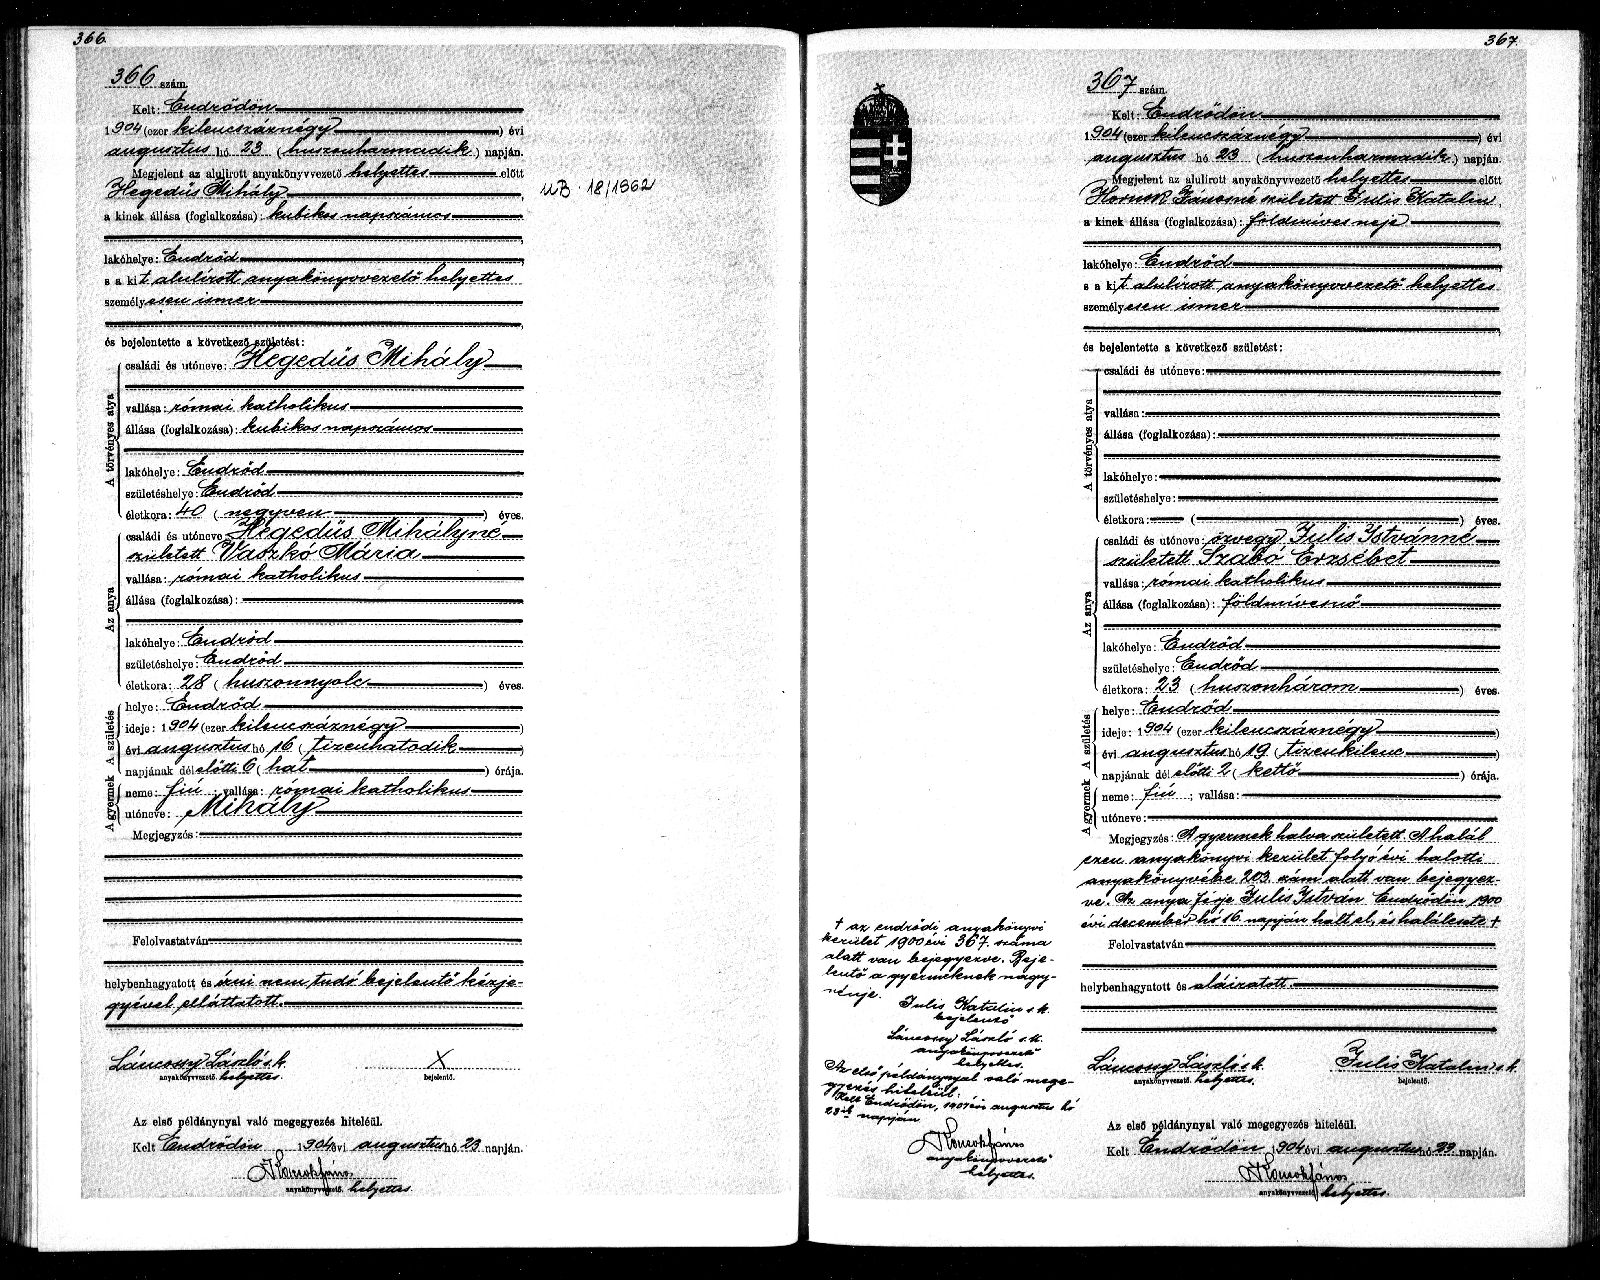 366.
366 szám.
Kelt: Endrődön
1904 (ezer kilencszáznégy) évi
augusztus hó 23 (huszonharmadik) napján.
Megjelent az alulirott anyakönyvvezető helyettes előtt
Hegedűs Mihály,
a kinek állása (foglalkozása): kubikos napszámos
lakóhelye: Endrőd
s a kit alulírott anyakönyvvezető helyettes
személyesen ismer
és bejelentette a következő születést:
A törvényes atya
családi és utóneve: Hegedűs Mihály
vallása: római katholikus
állása (foglalkozása): kubikos napszámos
lakóhelye: Endrőd
születéshelye: Endrőd
életkora: 40 (negyven) éves.
Az anya
családi és utóneve Hegedűs Mihályné
született Vaszkó Mária
vallása: római katholikus
állása (foglalkozása):
lakóhelye: Endrőd
születéshelye: Endrőd
életkora: 28 (huszonnyolc) éves.
A születés
helye: Endrőd
ideje: 1904 (ezer kilencszáznégy)
évi augusztus hó 16 (tizenhatodik)
napjának dél előtti 6 (hat) órája.
A gyermek
neme: fiú; vallása: római katholikus
utóneve: Mihály
Megjegyzés:
Felolvastatván
helybenhagyatott és írni nem tudó bejelentő kézje-
gyével elláttatott.
Láncossy László s. k. X
anyakönyvvezető. helyettes. bejelentő.
Az első példánynyal való megegyezés hiteléül.
Kelt Endrődön 1904 évi augusztus hó 23 napján.
anyakönyvvezető. helyettes.
UB. 18/1962
367.
367 szám.
Kelt: Endrődön
1904 (ezer kilencszáznégy) évi
augusztus hó 23 (huszonharmadik) napján.
Megjelent az alulirott anyakönyvvezető helyettes előtt
Jánosné született Julis Katalin,
a kinek állása (foglalkozása): földmíves neje
lakóhelye: Endrőd
s a kit alulírott anyakönyvvezető helyettes
személyesen ismer
és bejelentette a következő születést:
A törvényes atya
családi és utóneve:
vallása:
állása (foglalkozása):
lakóhelye:
születéshelye:
életkora: ( ) éves.
Az anya
családi és utóneve: özvegy Julis Istvánné
született Szabó Erzsébet
vallása: római katholikus
állása (foglalkozása): földmívesnő
lakóhelye: Endrőd
születéshelye: Endrőd
életkora: 23 (huszonhárom) éves.
A születés
helye: Endrőd
ideje: 1904 (ezer kilencszáznégy)
évi augusztus hó 19 (tizenkilenc)
napjának dél előtti 2 (kettő) órája.
A gyermek
neme: fiú; vallása:
utóneve:
Megjegyzés: A gyermek halva született. A halál
ezen anyakönyvi kerület folyó évi halotti
anyakönyvébe 203. szám alatt van bejegyez-
ve. Az anya férje Julis István Endrődön 1900
évi december hó 16. napján halt el, és halálesete +
Felolvastatván
helybenhagyatott és aláíratott.
Láncossy László s. k. Julis Katalin s. k.
anyakönyvvezető. helyettes. bejelentő.
Az első példánynyal való megegyezés hiteléül.
Kelt Endrődön, 1904 évi augusztus hó 23 napján.
anyakönyvvezető helyettes.
+ az endrődi anyakönyvi
kerület 1900 évi 367. száma
alatt van bejegyezve. Beje-
lentő a gyermeknek nagy-
nénje.
Julis Katalin s. k.
bejelentő
Láncossy László s. k.
anyakönyvvezető
helyettes.
Az első példánynyal való mege-
gyezés hiteléül.
Kelt Endrődön, 1904 évi augusztus hó
23ik napján
anyakönyvvezető
helyettes.